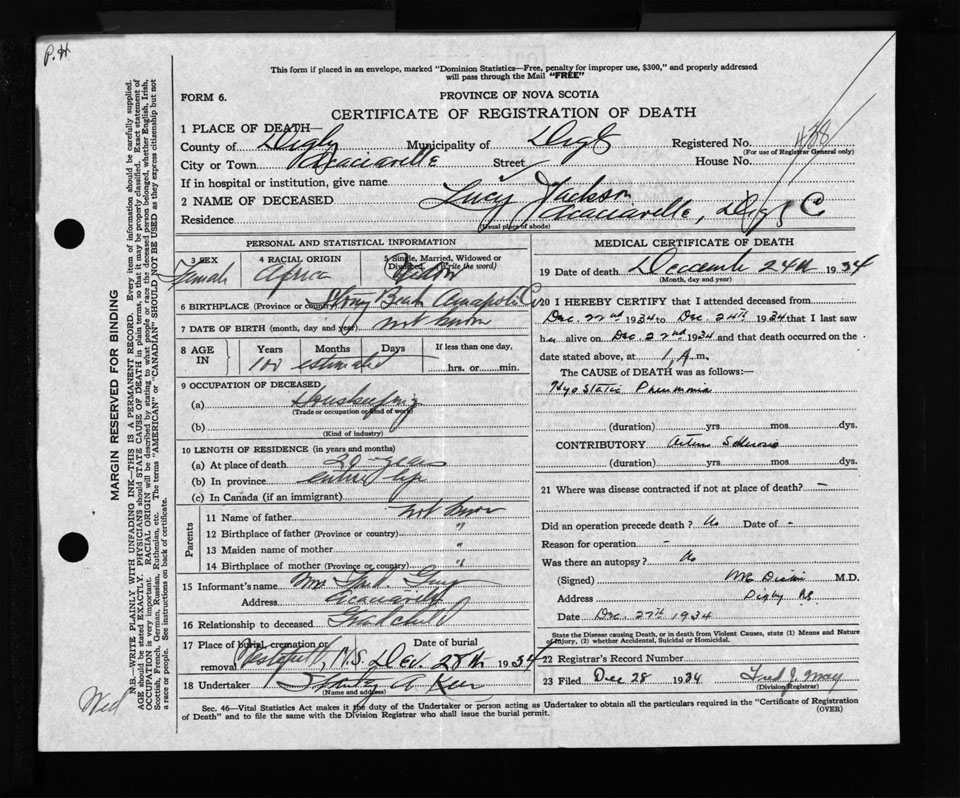 P.H
This form if placed in an envelope, marked "Dominion Statistics—Free, penalty for improper use, $300," and properly addressed
will pass through the Mail "FREE"
FORM 6.
PROVINCE OF NOVA SCOTIA
CERTIFICATE OF REGISTRATION OF DEATH
1 PLACE OF DEATH—
County of Digby Municipality of Digby Registered No. 438
(For use of Registrar General only)
City or Town Acaciaville Street House No.
If in hospital or institution, give name
2 NAME OF DECEASED Lucy Jackson
Residence Acaciaville, Digby C
(Usual place of abode)
PERSONAL AND STATISTICAL INFORMATION
3 SEX Female
4 RACIAL ORIGIN Africa
5 Single, Married, Widowed or Divorced (Write the word)
6 BIRTHPLACE (Province or country) Stony Beach Annapolis Co
7 DATE OF BIRTH (month, day and year) not known
8 AGE IN Years Months Days If less than one day,
100 estimated hrs. or min.
9 OCCUPATION OF DECEASED
(a) Housekeeping
(Trade or occupation or kind of work)
(b)
(Kind of industry)
10 LENGTH OF RESIDENCE (in years and months)
(a) At place of death years
(b) In province entire life
(c) In Canada (if an immigrant)
Parents
11 Name of father not known
12 Birthplace of father (Province or country) "
13 Maiden name of mother "
14 Birthplace of mother (Province or country) "
15 Informant's name Mrs
Address Acaciaville
16 Relationship to deceased Grandchild
17 Place of burial, cremation or removal N.S. Date of burial Dec. 28th 1934
18 Undertaker
(Name and address)
MEDICAL CERTIFICATE OF DEATH
19 Date of death December 24th 1934
(Month, day and year)
20 I HEREBY CERTIFY that I attended deceased from
Dec. 22nd 1934 to Dec. 24th 1934 that I last saw
her alive on Dec. 22nd 1934 and that death occurred on the
date stated above, at 1 A.m.
The CAUSE of DEATH was as follows:—
Hypostatic Pneumonia
(duration) yrs. mos. dys.
CONTRIBUTORY Arterio Sclerosis
(duration) yrs. mos. dys.
21 Where was disease contracted if not at place of death? –
Did an operation precede death? No Date of –
Reason for operation –
Was there an autopsy? No
(Signed) M.D.
Address Digby NS.
Date Dec. 27th 1934
State the Disease causing Death, or in death from Violent Causes, state (1) Means and Nature
of Injury, (2) whether Accidental, Suicidal or Homicidal.
22 Registrar's Record Number
23 Filed Dec 28 1934 Fred J. May
(Division Registrar)
Sec. 46—Vital Statistics Act makes it the duty of the Undertaker or person acting as Undertaker to obtain all the particulars required in the "Certificate of Registration
of Death" and to file the same with the Division Registrar who shall issue the burial permit. (OVER)
MARGIN RESERVED FOR BINDING
N.B.—WRITE PLAINLY WITH UNFADING INK—THIS IS A PERMANENT RECORD. Every item of information should be carefully supplied.
AGE should be stated EXACTLY. PHYSICIANS should STATE CAUSE OF DEATH in plain terms, so that it may be properly classified. Exact statement of
OCCUPATION is very important. RACIAL ORIGIN will be described by stating to what people or race the deceased person belonged, whether English, Irish,
Scottish, French, German, Russian, Ruthenian, etc. The terms "AMERICAN" or "CANADIAN" SHOULD NOT BE USED as they express citizenship but not
a race or people. See instructions on back of certificate.
Wed